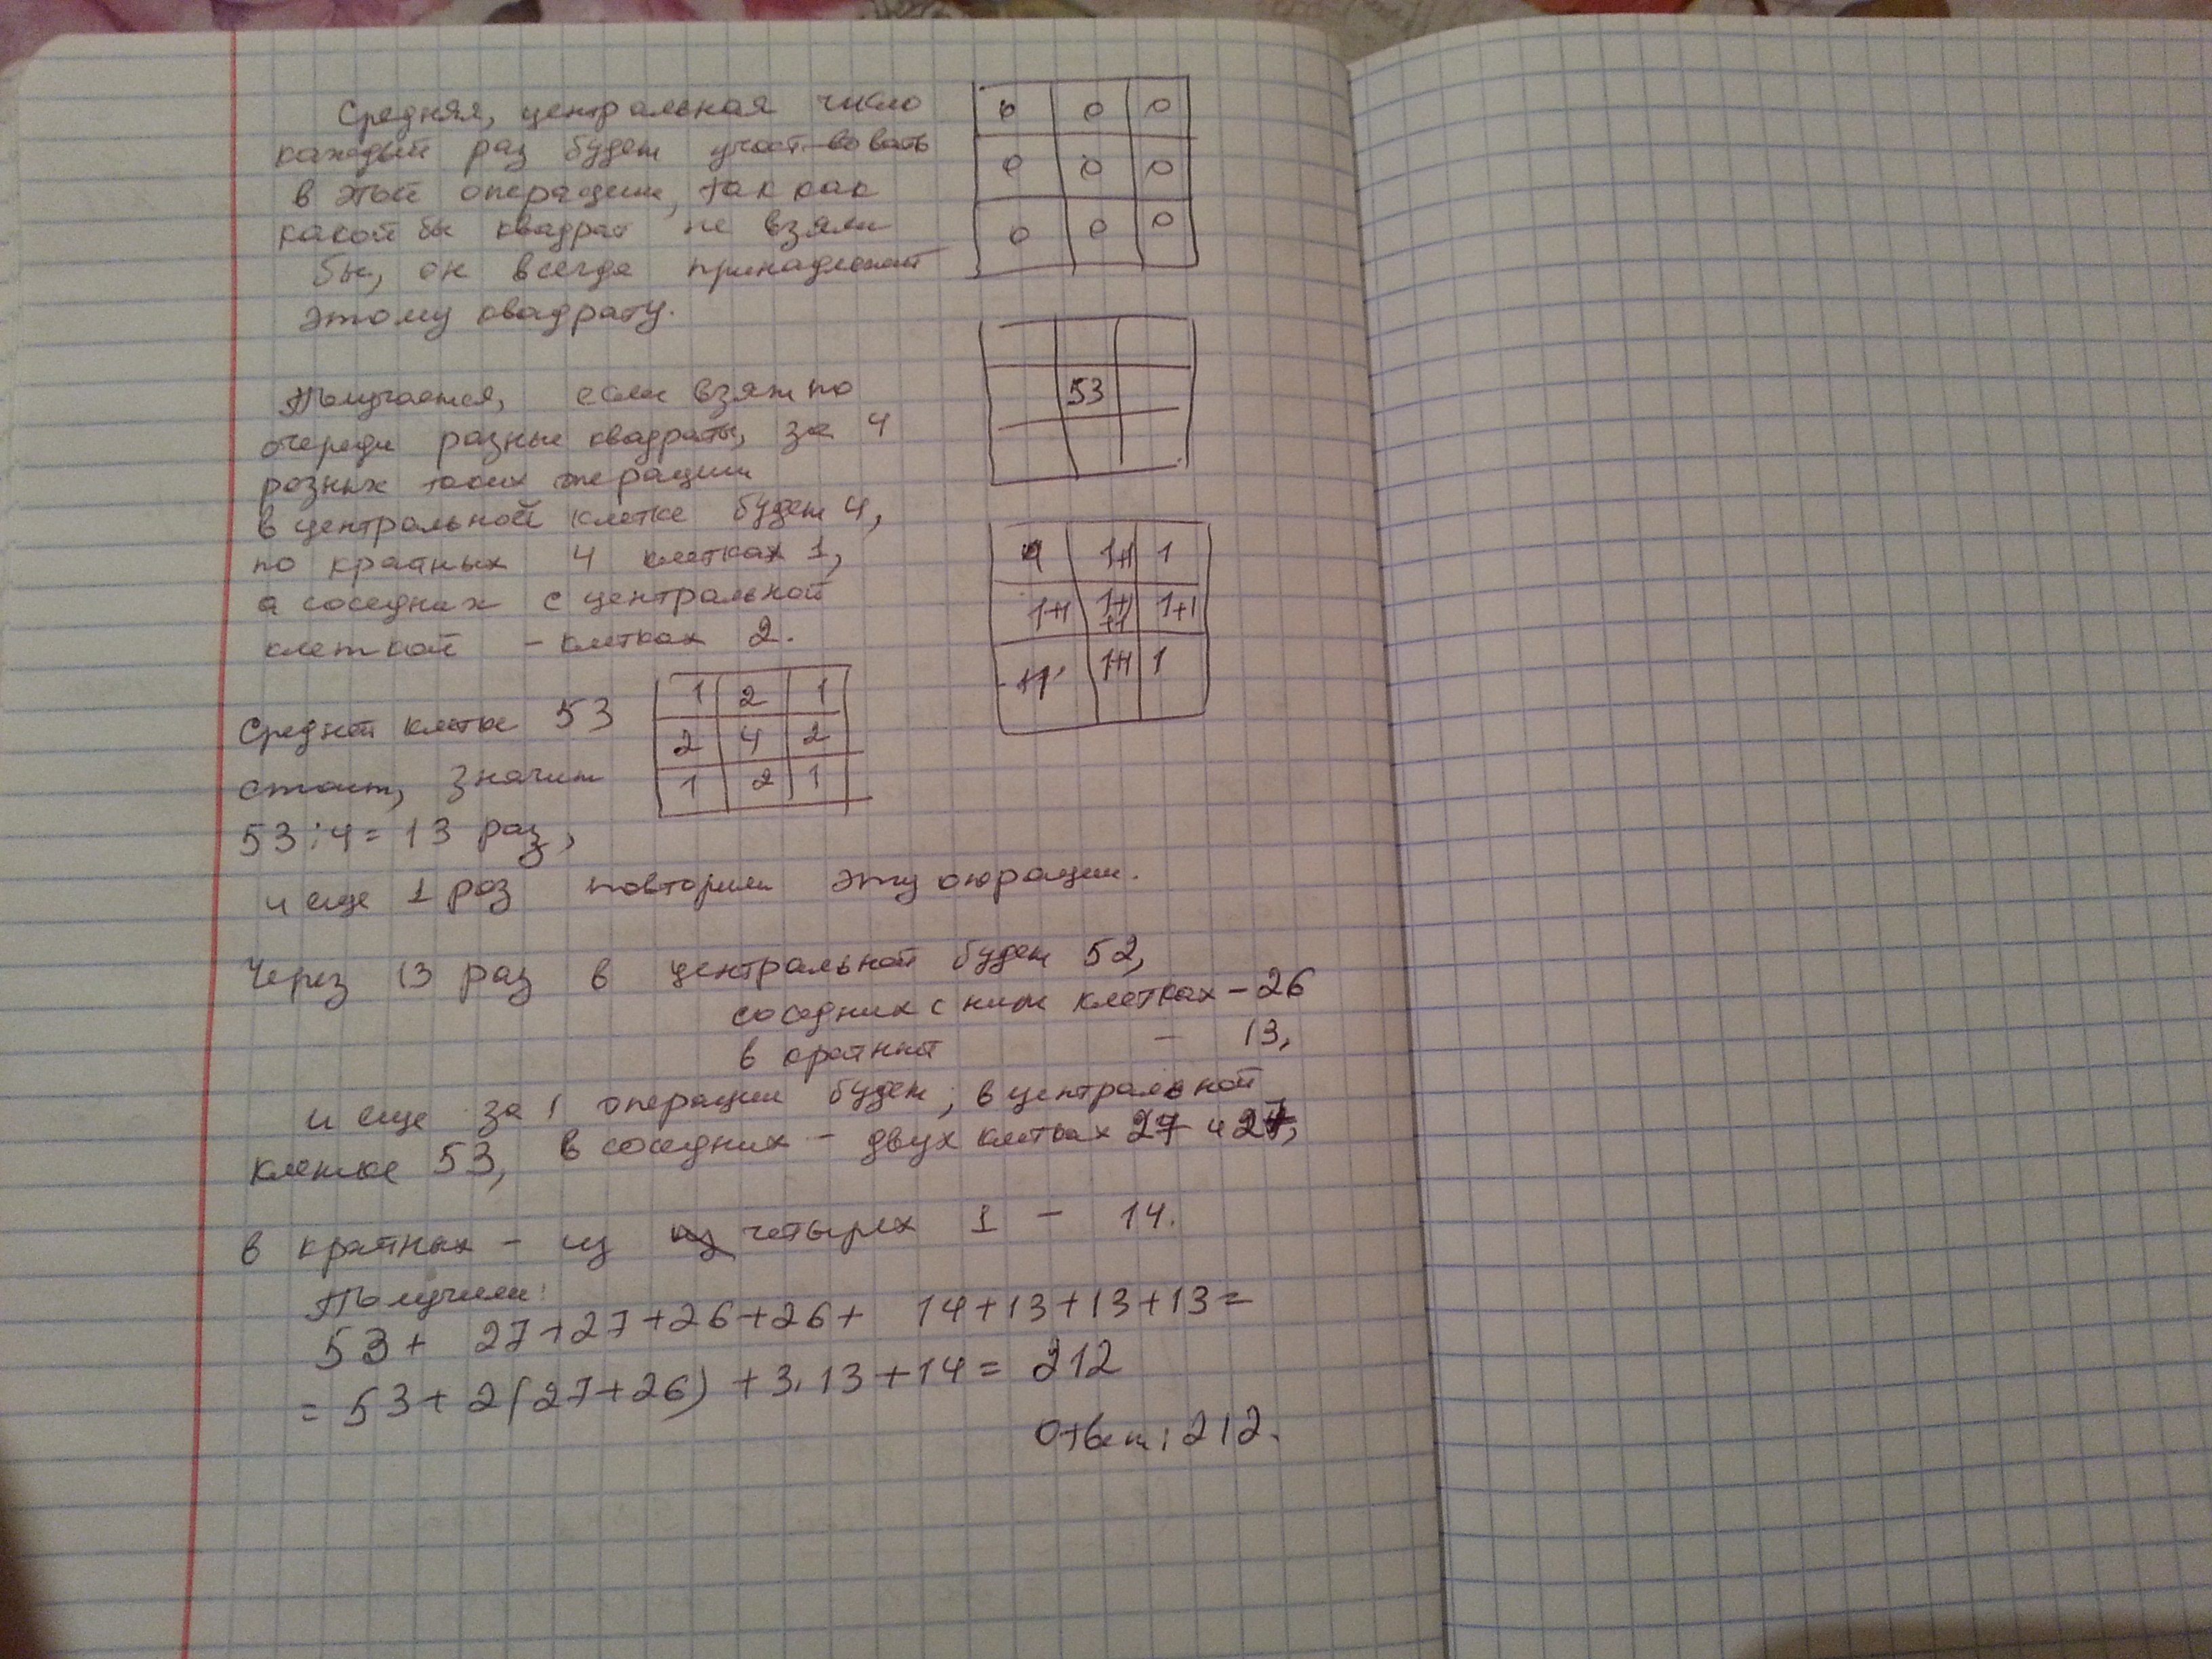 Средняя, центральная число
каждый раз будет участ-вовать
в этой операции, так как
какой бы квадрат не взяли
бы, он всегда принадлежит
этому квадрату.
0 0 0
0 0 0
0 0 0
53
Получается, если взять по
очереди разные квадраты, за 4
разных таких операции
в центральной клетке будет 4,
по крайных 4 клетках 1,
а соседних с центральной
клеткой - клетках 2.
1+1 1
1+1 1+1+1+1 1+1
1+1 1
Средней клетке 53
стоит, значит
53:4=13 раз,
и еще 1 раз повторим эту операции.
1 2 1
2 4 2
1 2 1
Через 13 раз в центральной будет 52,
соседних с ним клетках - 26
в крайней - 13,
и еще за 1 операции будет, в центральной
клетке 53, в соседних - двух клетках 27 и 27,
в крайных - из четырех 1 - 14.
Получили:
53+ 27+27+26+26+ 14+13+13+13=
= 53+2(27+26)+3.13+14= 212
Ответ: 212.